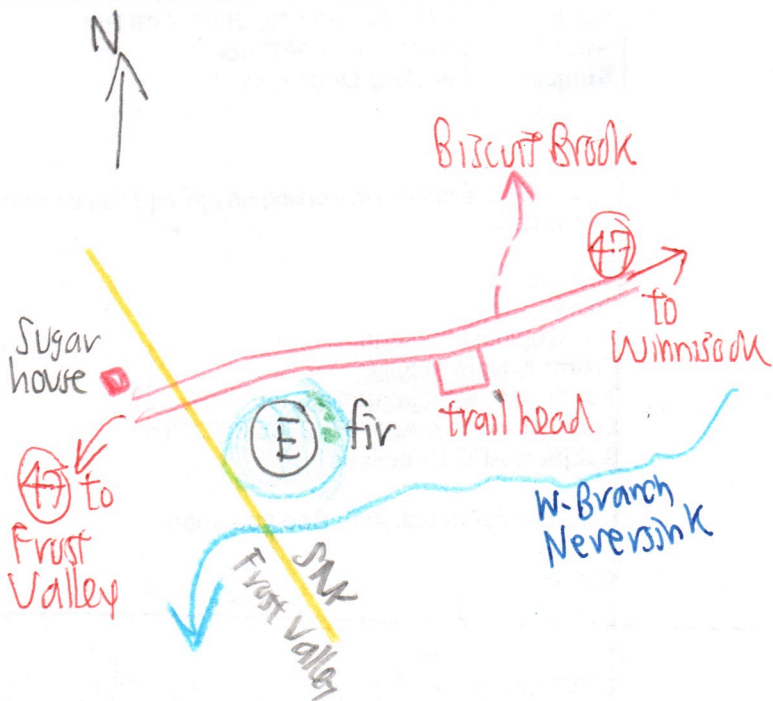 N
Biscuit Brook
47
to
Winnisook
Sugar
house
E
fir
trail head
47 to
Frost
Valley
W. Branch
Neversink
SNY
Frost Valley